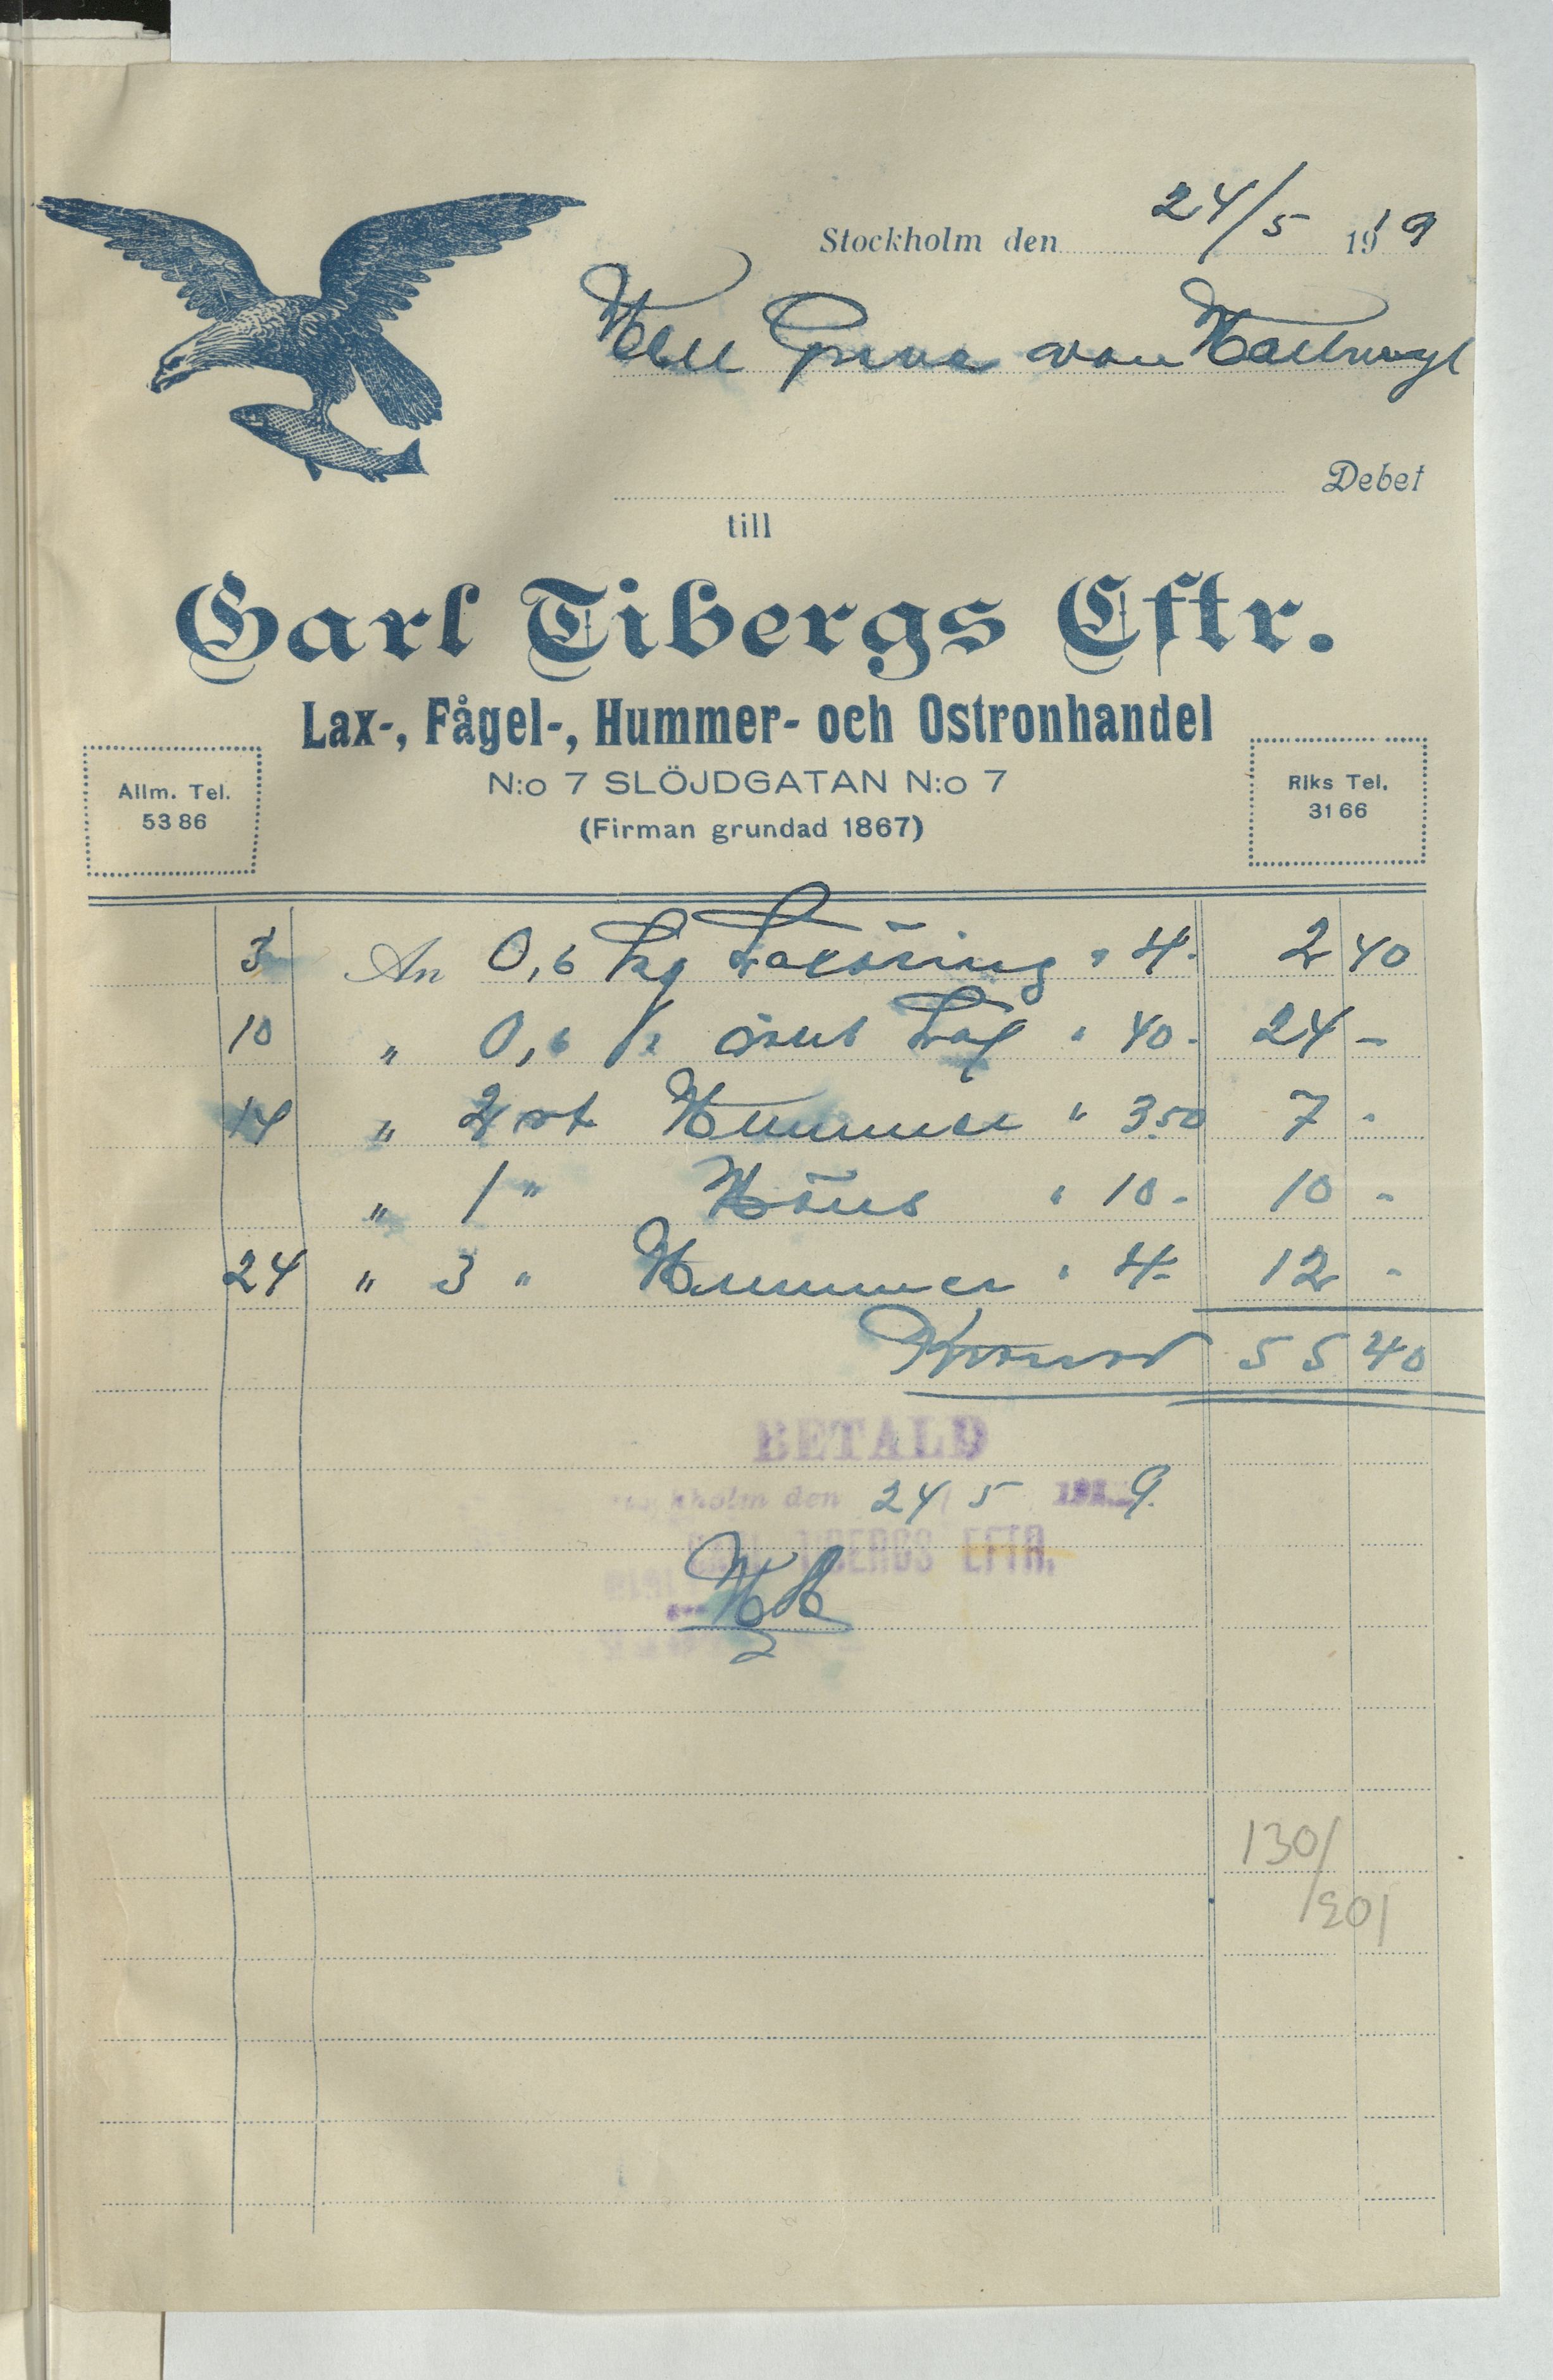 Stockholm den 24/5 1919
Herr Greve von Hallwyl
Debet
till
Carl Tibergs Eftr.
Lax-, Fågel-, Hummer- och Ostronhandel
N:o 7 SLÖJDGATAN N:o 7
(Firman grundad 1867)
Allm. Tel.
53 86
Riks Tel.
31 66
3 An 0,6 kg Laxöring " 4.- 2 40
10 " 0,6 " Lax " 40.- 24 -
14 " 2 st Hummer " 3.50 7 -
" 1 " Höns " 10.- 10 -
24 " 3 " Hummer " 4- 12 -
Kronor 55 40
BETALD
Stockholm den 24/5 1919.
CARL TIBERGS EFTR.
130/
/301